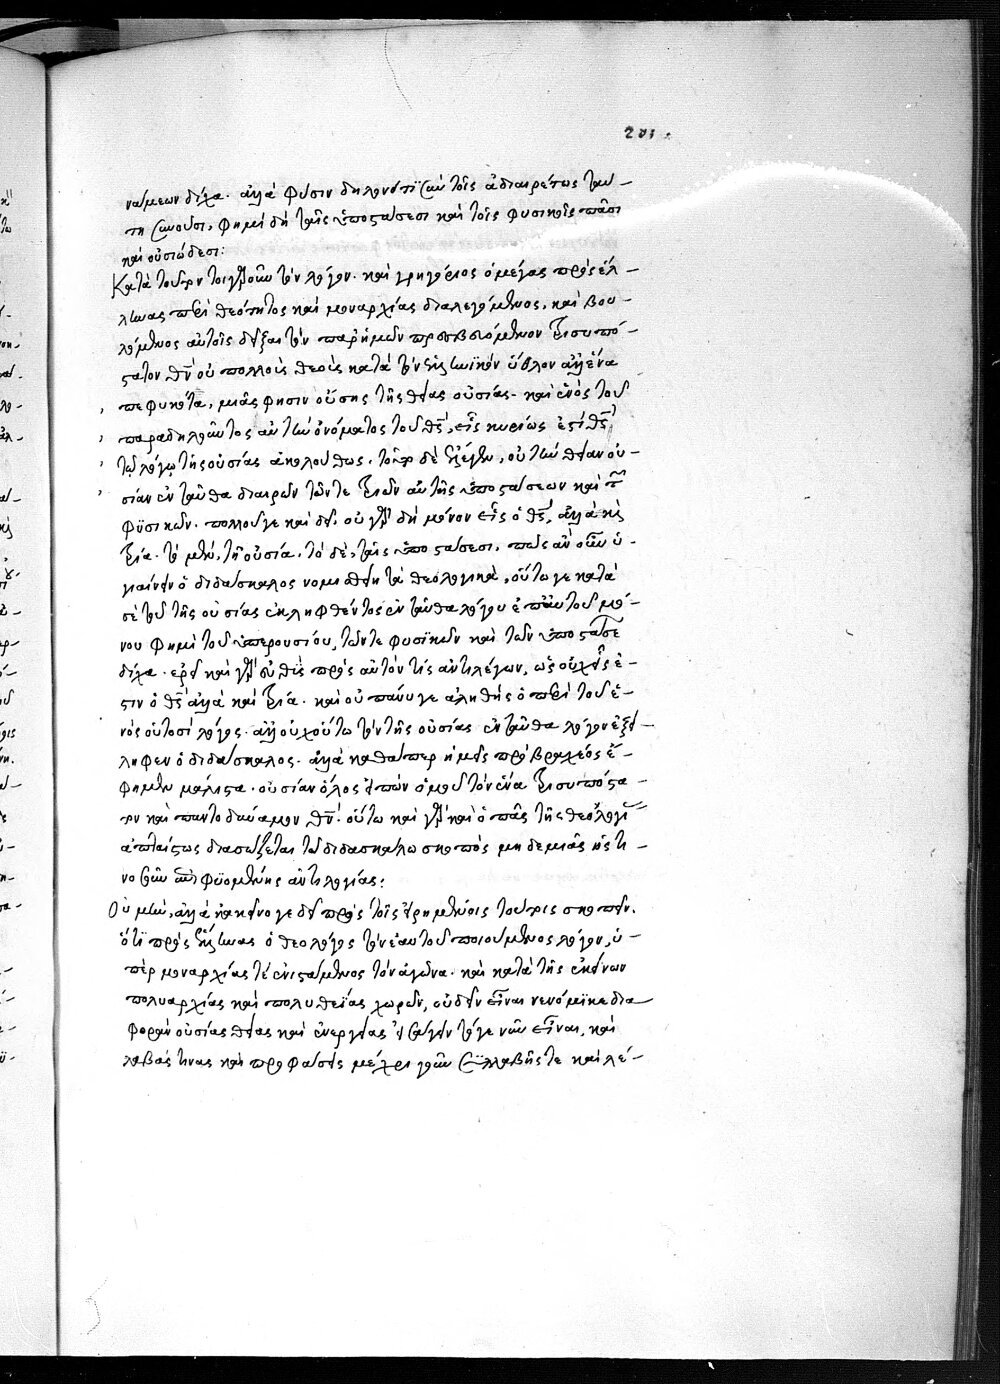 201.
νάμεων δίχα. ἀλλὰ φύσιν δηλονότι σὺν τοῖς ἀδιαιρέτως ταύ-
τη συνοῦσι. φημὶ δὴ ταῖς ὑποστάσεσι καὶ τοῖς φυσικοῖς πᾶσι
καὶ οὐσιώδεσι:
Κατὰ τοῦτον τοιγαροῦν τὸν λόγον. καὶ γρηγόριος ὁ μέγας πρὸς ἕλ-
ληνας περὶ θεότητος καὶ μοναρχίας διαλεγόμενος. καὶ βου-
λόμενος αὐτοῖς δεῖξαι τὸν παρ' ἡμῶν πρεσβευόμενον τρισυπό-
στατον θν οὐ πολλοὺς θεοὺς κατὰ τὸν ἑλληνικὸν ὕθλον ἀλλ' ἕνα
πεφυκότα, μιᾶς φησιν οὔσης τῆς θείας οὐσίας. καὶ ἑνὸς τοῦ
παραδηλοῦντος αὐτὴν ὀνόματος τοῦ θς, εἷς κυρίως ἐστὶ θς
τῷ λόγῳ τῆς οὐσίας ἀκολούθως. τοῦτο δὲ ἔλεγεν, οὐ τὴν θείαν οὐ-
σίαν ἐνταῦθα διαιρῶν τῶν τε τριῶν αὐτῆς ὑποστάσεων καὶ τῶν
φυσικῶν. πολλοῦ γε καὶ δεῖ. οὐ γὰρ δὴ μόνον εἷς ὁ θς, ἀλλὰ καὶ
τρία. τὸ μὲν, τῇ οὐσίᾳ. τὸ δὲ, ταῖς ὑποστάσεσι. πῶς ἂν οὖν ὑ-
γιαίνειν ὁ διδάσκαλος νομισθείη τὰ θεολογικὰ, οὕτω γε κατὰ
σὲ τοῦ τῆς οὐσίας ἐκληφθέντος ἐνταῦθα λόγου ἐπ' αὐτοῦ μό-
νου φημὶ τοῦ ὑπερουσίου, τῶν τε φυσικῶν καὶ τῶν ὑποστάσε
δίχα. ἐρεῖ καὶ γὰρ εὐθὺς πρὸς αὐτόν τις ἀντιλέγων, ὡς οὐχ εἷς ἐ-
στιν ὁ θς ἀλλὰ καὶ τρία. καὶ οὐ πάνυ γε ἀληθὴς ὁ περὶ τοῦ ἑ-
νὸς οὑτοσὶ λόγος. ἀλλ' οὐχ οὕτω τὸν τῆς οὐσίας ἐνταῦθα λόγον ἐξεί-
ληφεν ὁ διδάσκαλος. ἀλλὰ καθάπερ ἡμεῖς πρὸ βραχέος ἔ-
φημεν μάλιστα. οὐσίαν ὅλος εἰπὼν ὁμοῦ τὸν ἕνα τρισυπόστα-
τον καὶ παντοδύναμον θν. οὕτω καὶ γὰρ καὶ ὁ πᾶς τῆς θεολογί
ἀπταίστως διασώζεται τῷ διδασκάλῳ σκοπὸς μηδεμιᾶς ἡστι-
νοσοῦν ἀναφυομένης ἀντιλογίας:
Οὐ μὴν, ἀλλὰ κἀκεῖνό γε δεῖ πρὸς τοῖς εἰρημένοις τούτοις σκοπεῖν.
ὅτι πρὸς ἕλληνας ὁ θεολόγος τὸν ἑαυτοῦ ποιούμενος λόγον, ὑ-
πὲρ μοναρχίας τὲ ἐνιστάμενος τὸν ἀγῶνα. καὶ κατὰ τῆς ἐκείνων
πολυαρχίας καὶ πολυθεΐας χωρῶν, οὐδεν εἶναι νενόμικε δια-
φορὰν οὐσίας θείας καὶ ἐνεργείας εἰσάγειν τό γε νῦν εἶναι, καὶ
λαβάς τινας καὶ προφάσεις μέχρι γοῦν συλλαβῆς τε καὶ λέ-